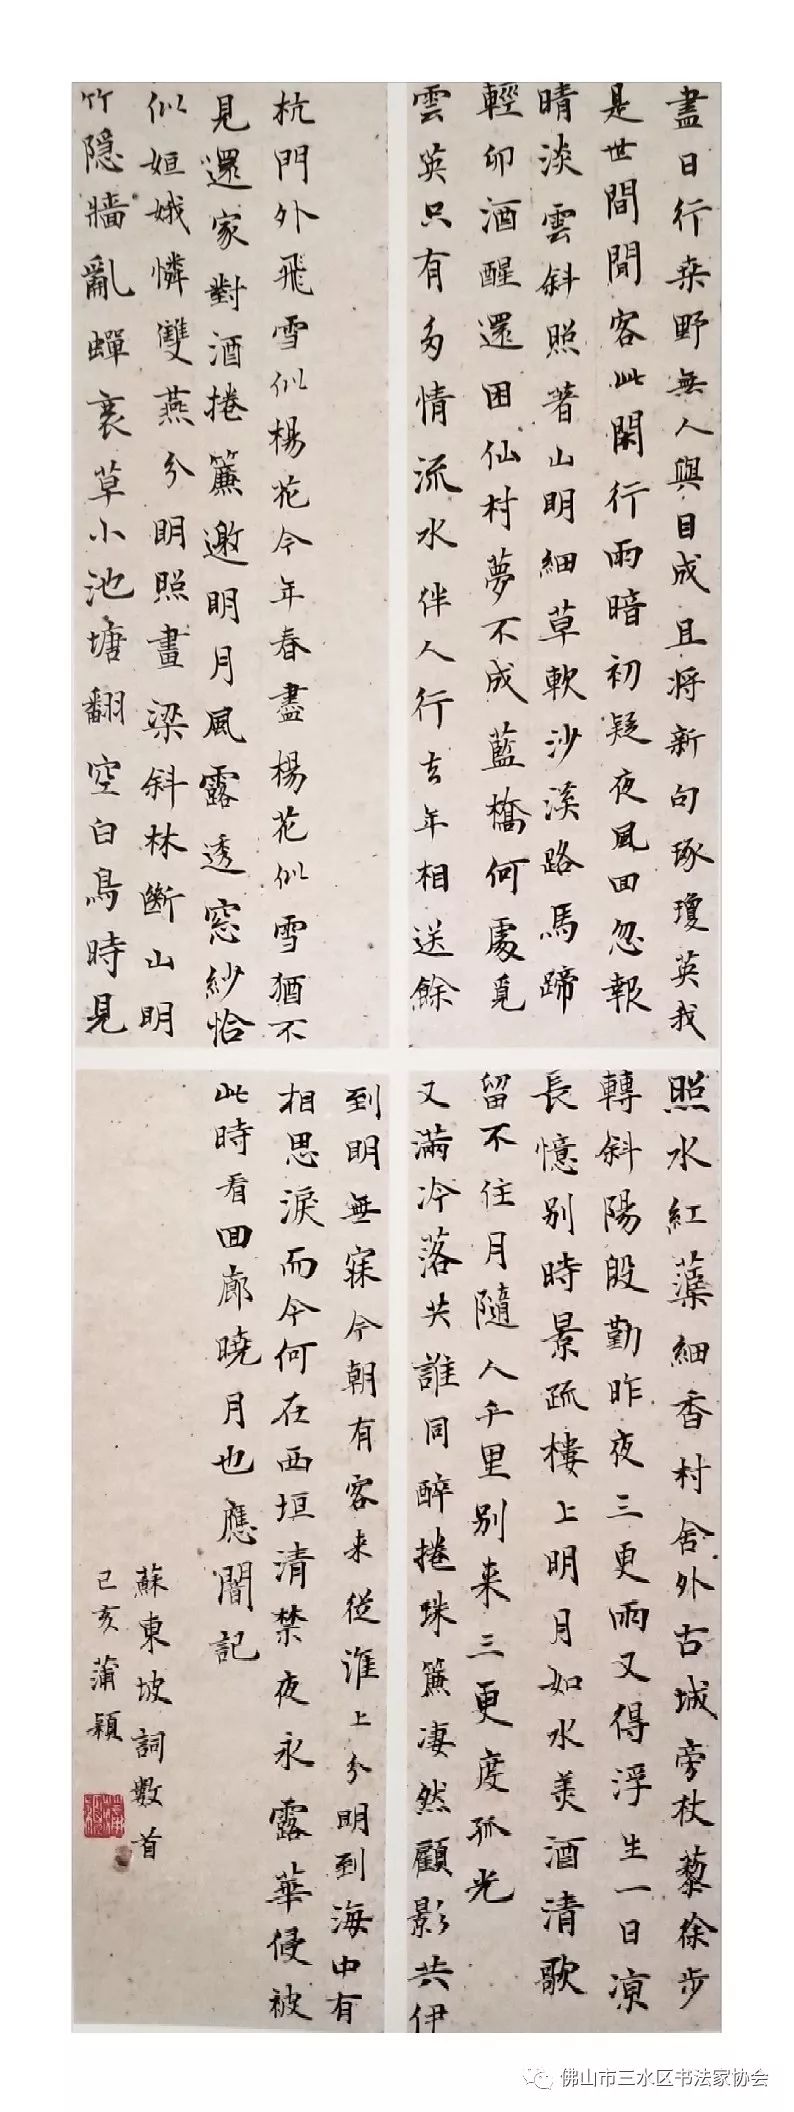 盡日行桑野無人與目成且將新句琢瓊英我
是世間閒客此閑行雨暗初疑夜風回忽報
晴淡雲斜照著山明細草軟沙溪路馬蹄
輕卯酒醒還困仙村夢不成藍橋何處覓
雲英只有多情流水伴人行去年相送餘
杭門外飛雪似楊花今年春盡楊花似雪猶不
見還家對酒捲簾邀明月風露透窓紗恰
似姮娥憐雙燕分明照畫梁斜林斷山明
竹隱牆亂蟬衰草小池塘翻空白鳥時見
照水紅蕖細香村舍外古城旁杖藜徐步
轉斜陽殷勤昨夜三更雨又得浮生一日涼
長憶别時景疏樓上明月如水美酒清歌
留不住月隨人千里别来三更度孤光
又滿冷落共誰同醉捲珠簾凄然顧影共伊
到明無寐今朝有客来從淮上分明到海中有
相思淚而今何在西垣清禁夜永露華侵被
此時看回廊曉月也應闇記
蘇東坡詞數首
己亥蒲穎
佛山市三水区书法家协会